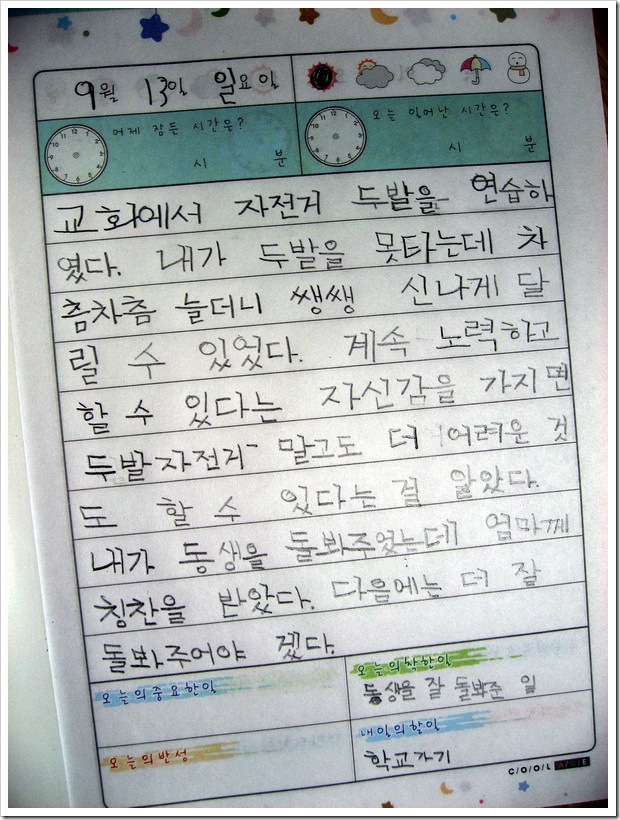 9월 13일 일요일
어제 잠든 시간은?
시 분
오늘 일어난 시간은?
시 분
교회에서 자전거 두발을 연습하
였다. 내가 두발을 못타는데 차
츰차츰 늘더니 쌩쌩 신나게 달
릴 수 있었다. 계속 노력하고
할 수 있다는 자신감을 가지면
두발자전거 말고도 더 어려운 것
도 할 수 있다는 걸 알았다.
내가 동생을 돌봐주었는데 엄마께
칭찬을 받았다. 다음에는 더 잘
돌봐주어야 겠다.
오늘의중요한일
오늘의착한일
동생을 잘 돌봐준 일
오늘의반성
내일의할일
학교가기
C/O/O/L